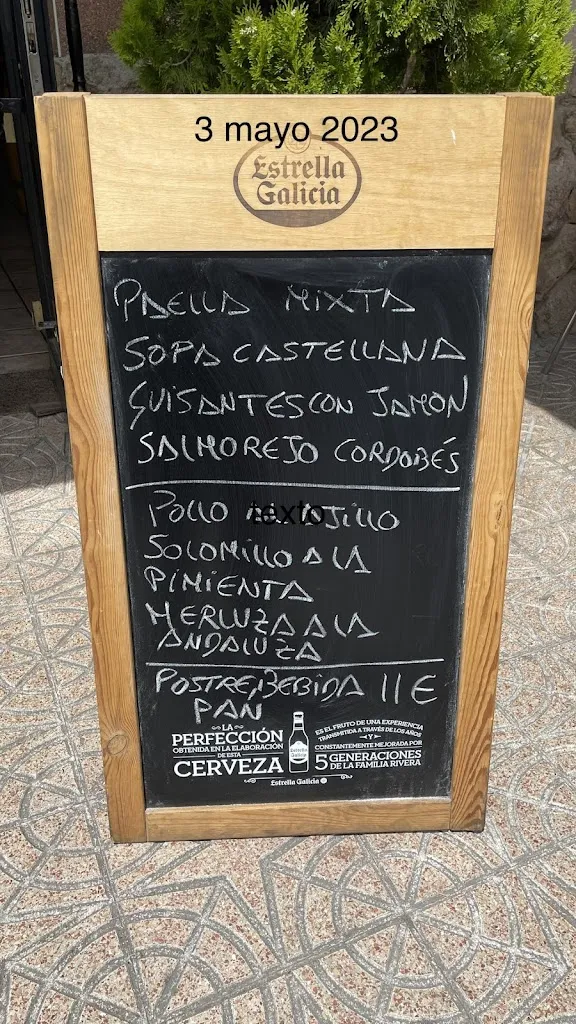 3 mayo 2023
Estrella
Galicia
PAELLA MIXTA
SOPA CASTELLANA
GUISANTES CON JAMON
SALMOREJO CORDOBÉS
POLLO texto AJILLO
SOLOMILLO A LA
PIMIENTA
MERLUZA A LA
ANDALUZA
POSTRE, BEBIDA 11 €
PAN
LA
PERFECCIÓN
OBTENIDA EN LA ELABORACIÓN
DE ESTA
CERVEZA
ES EL FRUTO DE UNA EXPERIENCIA
TRANSMITIDA A TRAVÉS DE LOS AÑOS
Y
CONSTANTEMENTE MEJORADA POR
5 GENERACIONES
DE LA FAMILIA RIVERA
Estrella Galicia